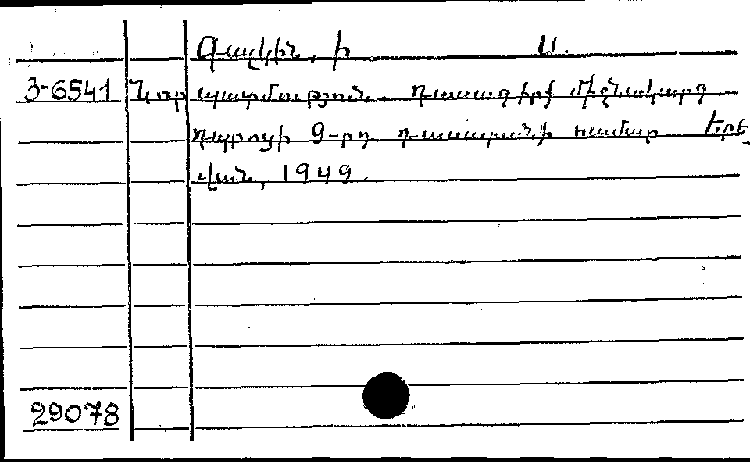 Գալկին, Ի Ա.
3-6541 Նոր պատմություն. Դասագիրք միջնակարգ
դպրոցի 9-րդ դասարանի համար Երե
վան, 1949.
29078